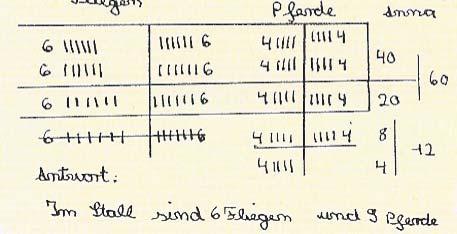 Pferde Summa
6 |||||| |||||| 6 4 |||| |||| 4
6 |||||| |||||| 6 4 |||| |||| 4 40
60
6 |||||| |||||| 6 4 |||| |||| 4 20
6 |||||| |||||| 6 4 |||| |||| 4 8
12
4 |||| 4
Antwort:
Im Stall sind 6 Fliegen und 9 Pferde